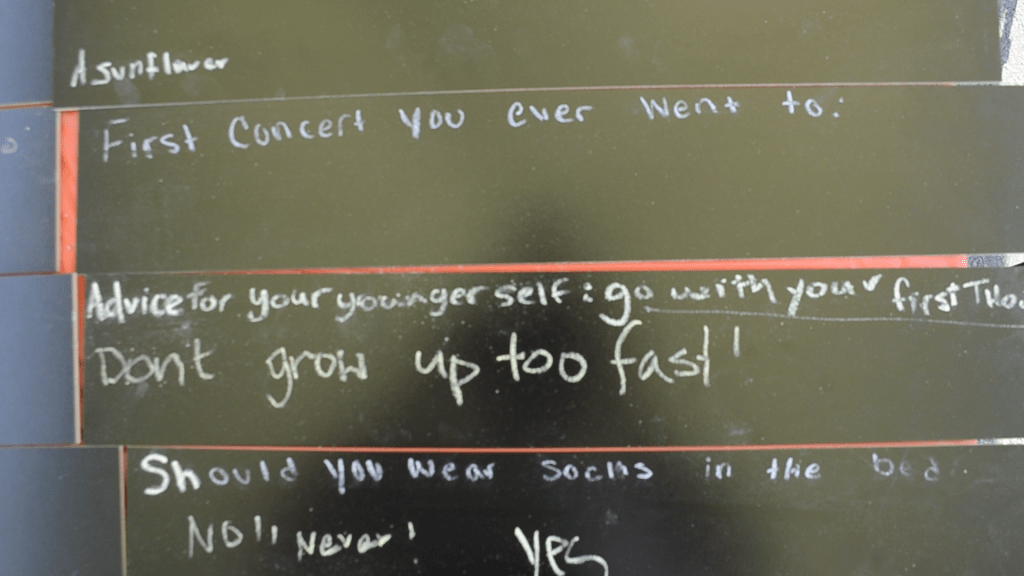 A sunflower
First Concert you ever went to:
Advice for your younger self: go with your first
Dont grow up too fast!
Should you wear socks in the bed
No!! Never! yes